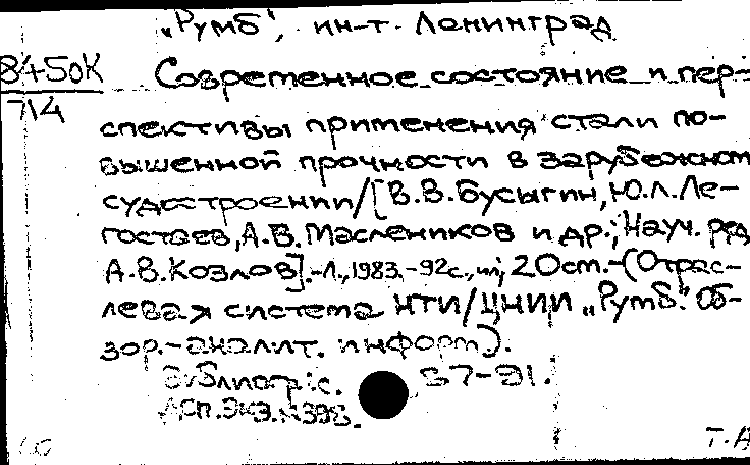 „Румб", ин-т. Ленинград
84-5ок
714
Современное состояние и пер-
спективы применения стали по-
вышенной прочности в зарубежном
судостроении/[В.В.Бусыгин, Ю.Л.Ле-
гостаев, А.В.Маслеников и др.; Науч. ред
А.В.Козлов].-Л., 1983.-92с., ил; 20см.-(Отрас-
левая система НТИ/ЦНИИ „Румб". Об-
зор.-аналит. информ).
Библиогр.: с. 87-91.
ДСП. Экз. №398.
Т.А